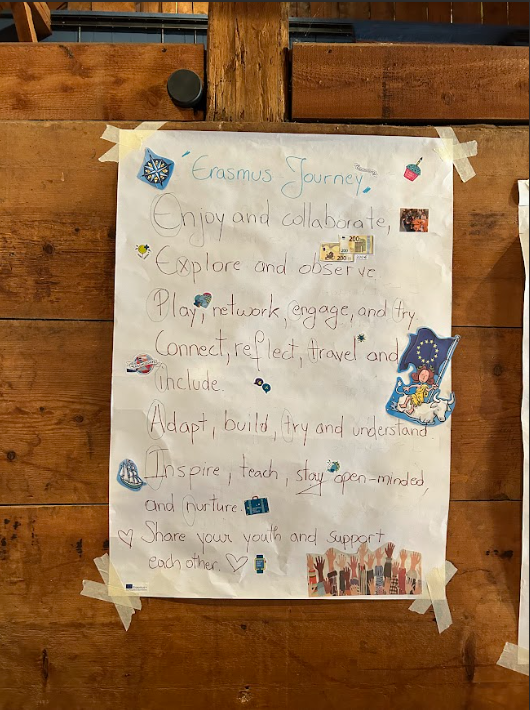 "Erasmus Journey"
Enjoy and collaborate,
Explore and observe
Play, network, engage, and try
Connect, reflect, travel and
include.
Adapt, build, try and understand.
Inspire, teach, stay open-minded,
and nurture.
Share your youth and support
each other.